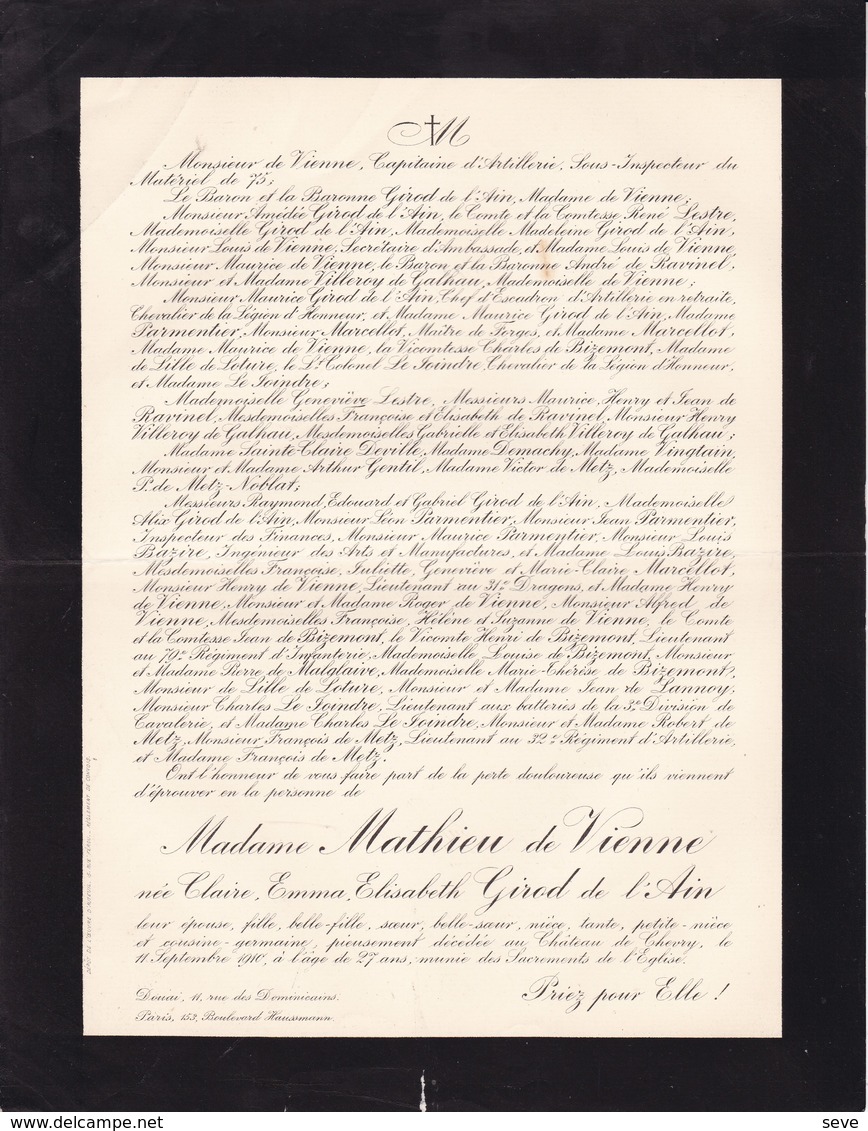 M
Monsieur de Vienne, Capitaine d'Artillerie, Sous-Inspecteur du
Matériel de 75;
Le Baron et la Baronne Girod de l'Ain, Madame de Vienne;
Monsieur Amédée Girod de l'Ain, le Comte et la Comtesse René Lestre,
Mademoiselle Girod de l'Ain, Mademoiselle Madeleine Girod de l'Ain,
Monsieur Louis de Vienne, Secrétaire d'Ambassade, et Madame Louis de Vienne,
Monsieur Maurice de Vienne, le Baron et la Baronne André de Ravinel,
Monsieur et Madame Villeroy de Galhau, Mademoiselle de Vienne;
Monsieur Maurice Girod de l'Ain, Chef d'Escadron d'Artillerie en retraite,
Chevalier de la Légion d'Honneur, et Madame Maurice Girod de l'Ain, Madame
Parmentier, Monsieur Marcellot, Maître de Forges, et Madame Marcellot,
Madame Maurice de Vienne, la Vicomtesse Charles de Bizemont, Madame
de Lille de Loture, le Lt Colonel Le Joindre, Chevalier de la Légion d'Honneur,
et Madame Le Joindre;
Mademoiselle Geneviève Lestre, Messieurs Maurice, Henry et Jean de
Ravinel, Mesdemoiselles Françoise et Elisabeth de Ravinel, Monsieur Henry
Villeroy de Galhau, Mesdemoiselles Gabrielle et Elisabeth Villeroy de Galhau;
Madame Sainte-Claire Deville, Madame Demachy, Madame Vingtain,
Monsieur et Madame Arthur Gentil, Madame Victor de Metz, Mademoiselle
P. de Metz-Noblat;
Messieurs Raymond, Edouard et Gabriel Girod de l'Ain, Mademoiselle
Alix Girod de l'Ain, Monsieur Léon Parmentier, Monsieur Jean Parmentier,
Inspecteur des Finances, Monsieur Maurice Parmentier, Monsieur Louis
Bazire, Ingénieur des Arts et Manufactures, et Madame Louis Bazire,
Mesdemoiselles Françoise, Juliette, Geneviève et Marie-Claire Marcellot,
Monsieur Henry de Vienne, Lieutenant au 31e Dragons, et Madame Henry
de Vienne, Monsieur et Madame Roger de Vienne, Monsieur Alfred de
Vienne, Mesdemoiselles Françoise, Hélène et Suzanne de Vienne, le Comte
et la Comtesse Jean de Bizemont, le Vicomte Henri de Bizemont, Lieutenant
au 79e Régiment d'Infanterie, Mademoiselle Louise de Bizemont, Monsieur
et Madame Pierre de Malglaive, Mademoiselle Marie-Thérèse de Bizemont,
Monsieur de Lille de Loture, Monsieur et Madame Jean de Lannoy,
Monsieur Charles Le Joindre, Lieutenant aux batteries de la 3e Division de
Cavalerie, et Madame Charles Le Joindre, Monsieur et Madame Robert de
Metz, Monsieur François de Metz, Lieutenant au 32e Régiment d'Artillerie,
et Madame François de Metz.
Ont l'honneur de vous faire part de la perte douloureuse qu'ils viennent
d'éprouver en la personne de
Madame Mathieu de Vienne
née Claire, Emma, Elisabeth Girod de l'Ain
leur épouse, fille, belle-fille, sœur, belle-sœur, nièce, tante, petite-nièce
et cousine-germaine, pieusement décédée au Château de Chevry, le
11 Septembre 1910, à l'âge de 27 ans, munie des Sacrements de l'Eglise.
Priez pour Elle !
Douai, 11, rue des Dominicains.
Paris, 153, Boulevard Haussmann.
delcampe.net
seve